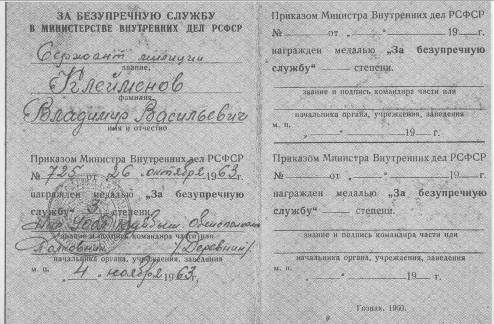 ЗА БЕЗУПРЕЧНУЮ СЛУЖБУ
В МИНИСТЕРСТВЕ ВНУТРЕННИХ ДЕЛ РСФСР
Сержант милиции
звание,
Клейменов
фамилия,
Владимир Васильевич
имя и отчество
Приказом Министра Внутренних дел РСФСР
№ 725 от „26„ октября 1963 г.
награжден медалью „За безупречную
службу“ 3 степени.
звание и подпись командира части или
Полковник Деревнин
начальника органа, учреждения, заведения
м. п. 4 ноября 1963 г.
Приказом Министра Внутренних дел РСФСР
№ — от „ — “ — 19 — г.
награжден медалью „За безупречную
службу“ — степени.
звание и подпись командира части или
начальника органа, учреждения, заведения
м. п. „ — “ — 19 — г.
Приказом Министра Внутренних дел РСФСР
№ — от „ — “ — 19 — г.
награжден медалью „За безупречную
службу“ — степени.
звание и подпись командира части или
начальника органа, учреждения, заведения
м. п. „ — “ — 19 — г.
Гознак. 1960.